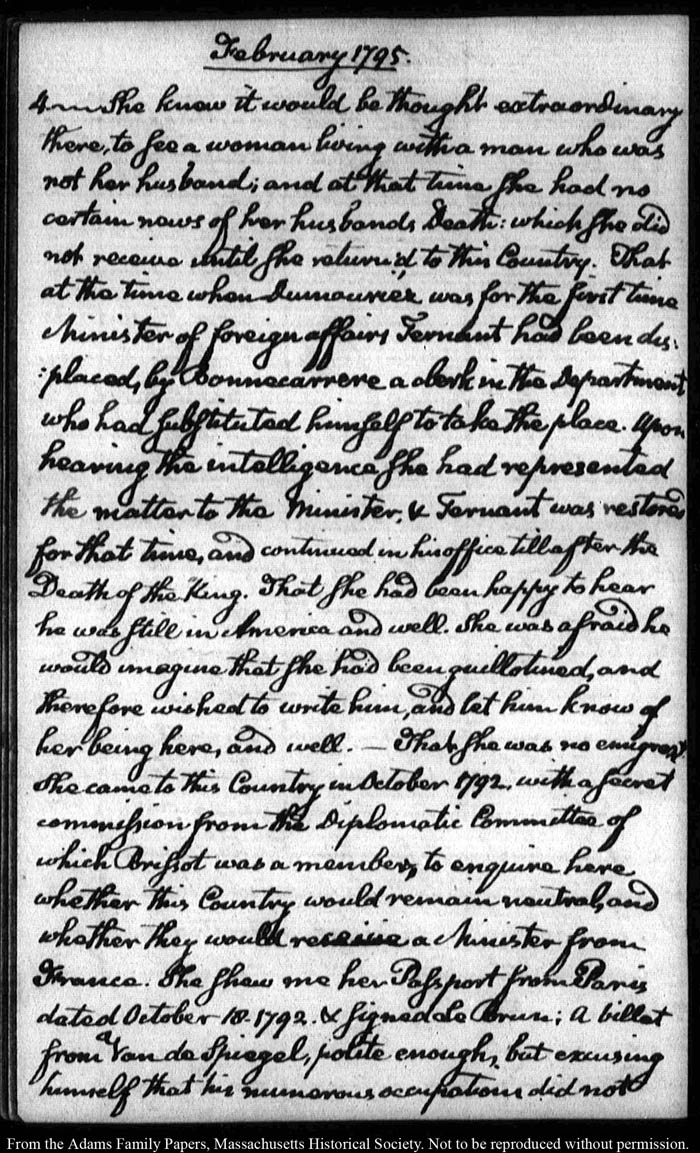 February 1795.
4 — She knew it would be thought extraordinary
there, to see a woman living with a man who was
not her husband; and at that time she had no
certain news of her husbands Death: which she did
not receive until she return'd to this Country. That
at the time when Dumouriez, was for the first time
Minister of foreign affairs Ternant had been dis:
:placed, by Bonnecarrere a clerk in the Department
who had substituted himself to take the place. Upon
hearing the intelligence she had represented
the matter to the Minister, & Ternant was restored
for that time, and continued in his office till after the
Death of the King. That she had been happy to hear
he was still in America and well. She was afraid he
would imagine that she had been guillotined, and
therefore wished to write him, and let him know of
her being here, and well. — That she was no emigrant
She came to this Country in October 1792. with a secret
commission from the Diplomatic Committee of
which Brissot was a member, to enquire here
whether this Country would remain neutral, and
whether they would receive a Minister from
France. She shew me her Passport from Paris
dated October 18. 1792. & signed Le Brun; A billet
from a Van de Spiegel, polite enough, but excusing
himself that his numerous occupations did not
From the Adams Family Papers, Massachusetts Historical Society. Not to be reproduced without permission.